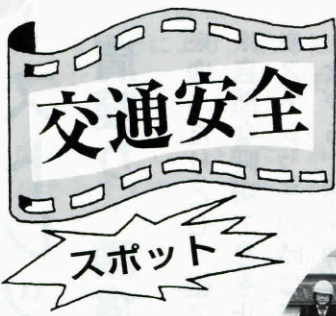 交通安全
スポット